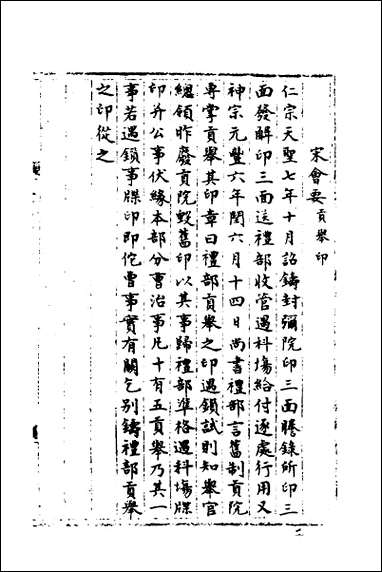 宋會要貢舉印
仁宗天聖七年十月詔鑄封彌院印三面謄錄所印三
面發解印三面送禮部收管遇科場給付逐處行用又
神宗元豐六年閏六月十四日尚書禮部言舊制貢院
專掌貢舉其印章曰禮部貢舉之印遇鎖試則知舉官
總領昨廢貢院毀舊印以其事歸禮部準格遇科場牒
印并公事伏緣本部分曹治事凡十有五貢舉乃其一
事若遇鎖事牒印即佗曹事實有闕乞別鑄禮部貢舉
之印從之